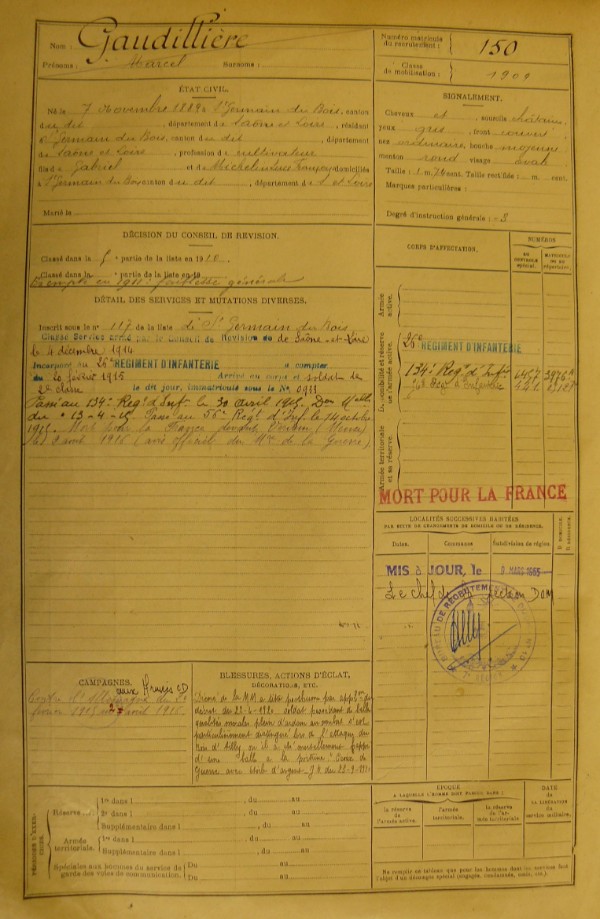 Nom : Gaudillière
Prénoms : Marcel Surnoms :
Numéro matricule du recrutement : 150
Classe de mobilisation : 1909
ÉTAT CIVIL.
Né le 7 Novembre 1889 à St Germain du Bois, canton
du dit, département de Saône et Loire, résidant
à St Germain du Bois, canton du dit, département
de Saône et Loire, profession de cultivateur
fils de Gabriel et de Michelin domiciliés
à St Germain du Bois canton du dit, département de S. et Loire
Marié le
SIGNALEMENT.
Cheveux et sourcils châtains,
yeux gris, front couvert
nez ordinaire, bouche moyenne
menton rond visage ovale
Taille : 1 m. 74 cent. Taille rectifiée : m. cent.
Marques particulières :
Degré d'instruction générale : 3
DÉCISION DU CONSEIL DE REVISION.
Classé dans la 5 partie de la liste en 1910
Classé dans la partie de la liste en 19
Exempté en 1911 : faiblesse générale
DÉTAIL DES SERVICES ET MUTATIONS DIVERSES.
Inscrit sous le n° 117 de la liste de St Germain du Bois
Classé Service armé par le Conseil de Revision de Saône-et-Loire
le 4 décembre 1914
Incorporé au 26e RÉGIMENT D'INFANTERIE à compter
du 20 février 1915 Arrivé au corps et soldat de
2e classe le dit jour, immatriculé sous le N°
Passé au 134e Régt d'Inf. le 30 avril 1915. Don Melle
du 13-4-15. Passé au 56e Régt d'Inf. le 14 octobre
1915. Mort pour la France devant Verdun (Meuse)
le 2 avril 1916 (avis officiel du Mre de la Guerre)
CORPS D'AFFECTATION.
NUMÉROS
AU CONTRÔLE SPÉCIAL.
MATRICULE OU AU RÉPERTOIRE.
Armée active.
Disponibilité et réserve de l'armée active.
26e RÉGIMENT D'INFANTERIE
134e Régt d'Infie
56e Régt d'Infanterie
Armée territoriale et sa réserve.
MORT POUR LA FRANCE
LOCALITÉS SUCCESSIVES HABITÉES
PAR SUITE DE CHANGEMENTS DE DOMICILE OU DE RÉSIDENCE.
Dates.
Communes
Subdivision de région.
D. domicile. R. résidence.
MIS à JOUR, le 9 MARS 1965
Le Chef de Section
BUREAU DE RECRUTEMENT
CAMPAGNES.
Contre l'Allemagne du 20
février 1915 au 2 avril 1916
aux Armées CD
BLESSURES, ACTIONS D'ÉCLAT,
DÉCORATIONS, ETC.
Décoré de la MM à titre posthume par appl. du
décret des soldat possédant de belles
qualités morales plein d'ardeur au combat s'est
particulièrement distingué lors de l'attaque du
Bois d'Ailly où il a été mortellement frappé
d'une balle à la poitrine. Croix de
Guerre avec étoile d'argent.
PÉRIODES D'EXERCICES.
Réserve
Armée territoriale.
1re dans l , du au
2e dans l , du au
Supplémentaire dans l , du au
1re dans l , du au
Supplémentaire dans l , du au
Spéciales aux hommes du service de garde des voies de communication.
Du au
Du au
ÉPOQUE
À LAQUELLE L'HOMME DOIT PASSER DANS :
la réserve de l'armée active.
l'armée territoriale.
la réserve de l'armée territoriale.
DATE
DE LA LIBÉRATION du service militaire.
Ne remplir ce tableau que pour les hommes dont les services font l'objet d'un décompte spécial (engagés, condamnés, omis, etc.)